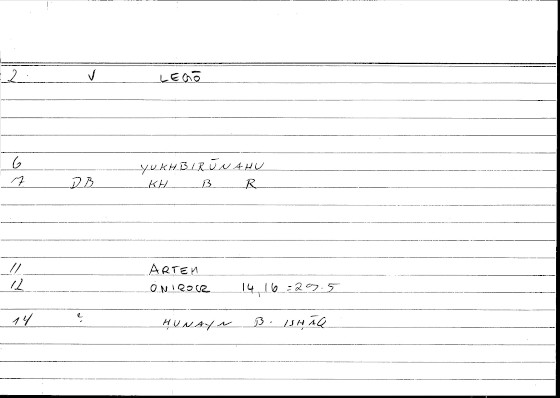 2. V LEGŌ
6 YUKHBIRŪNAHU
7 DB KH B R
11 ARTEM
12 ONIROCR 14,16 = 29.5
14 ? ḤUNAYN B. ISḤĀQ